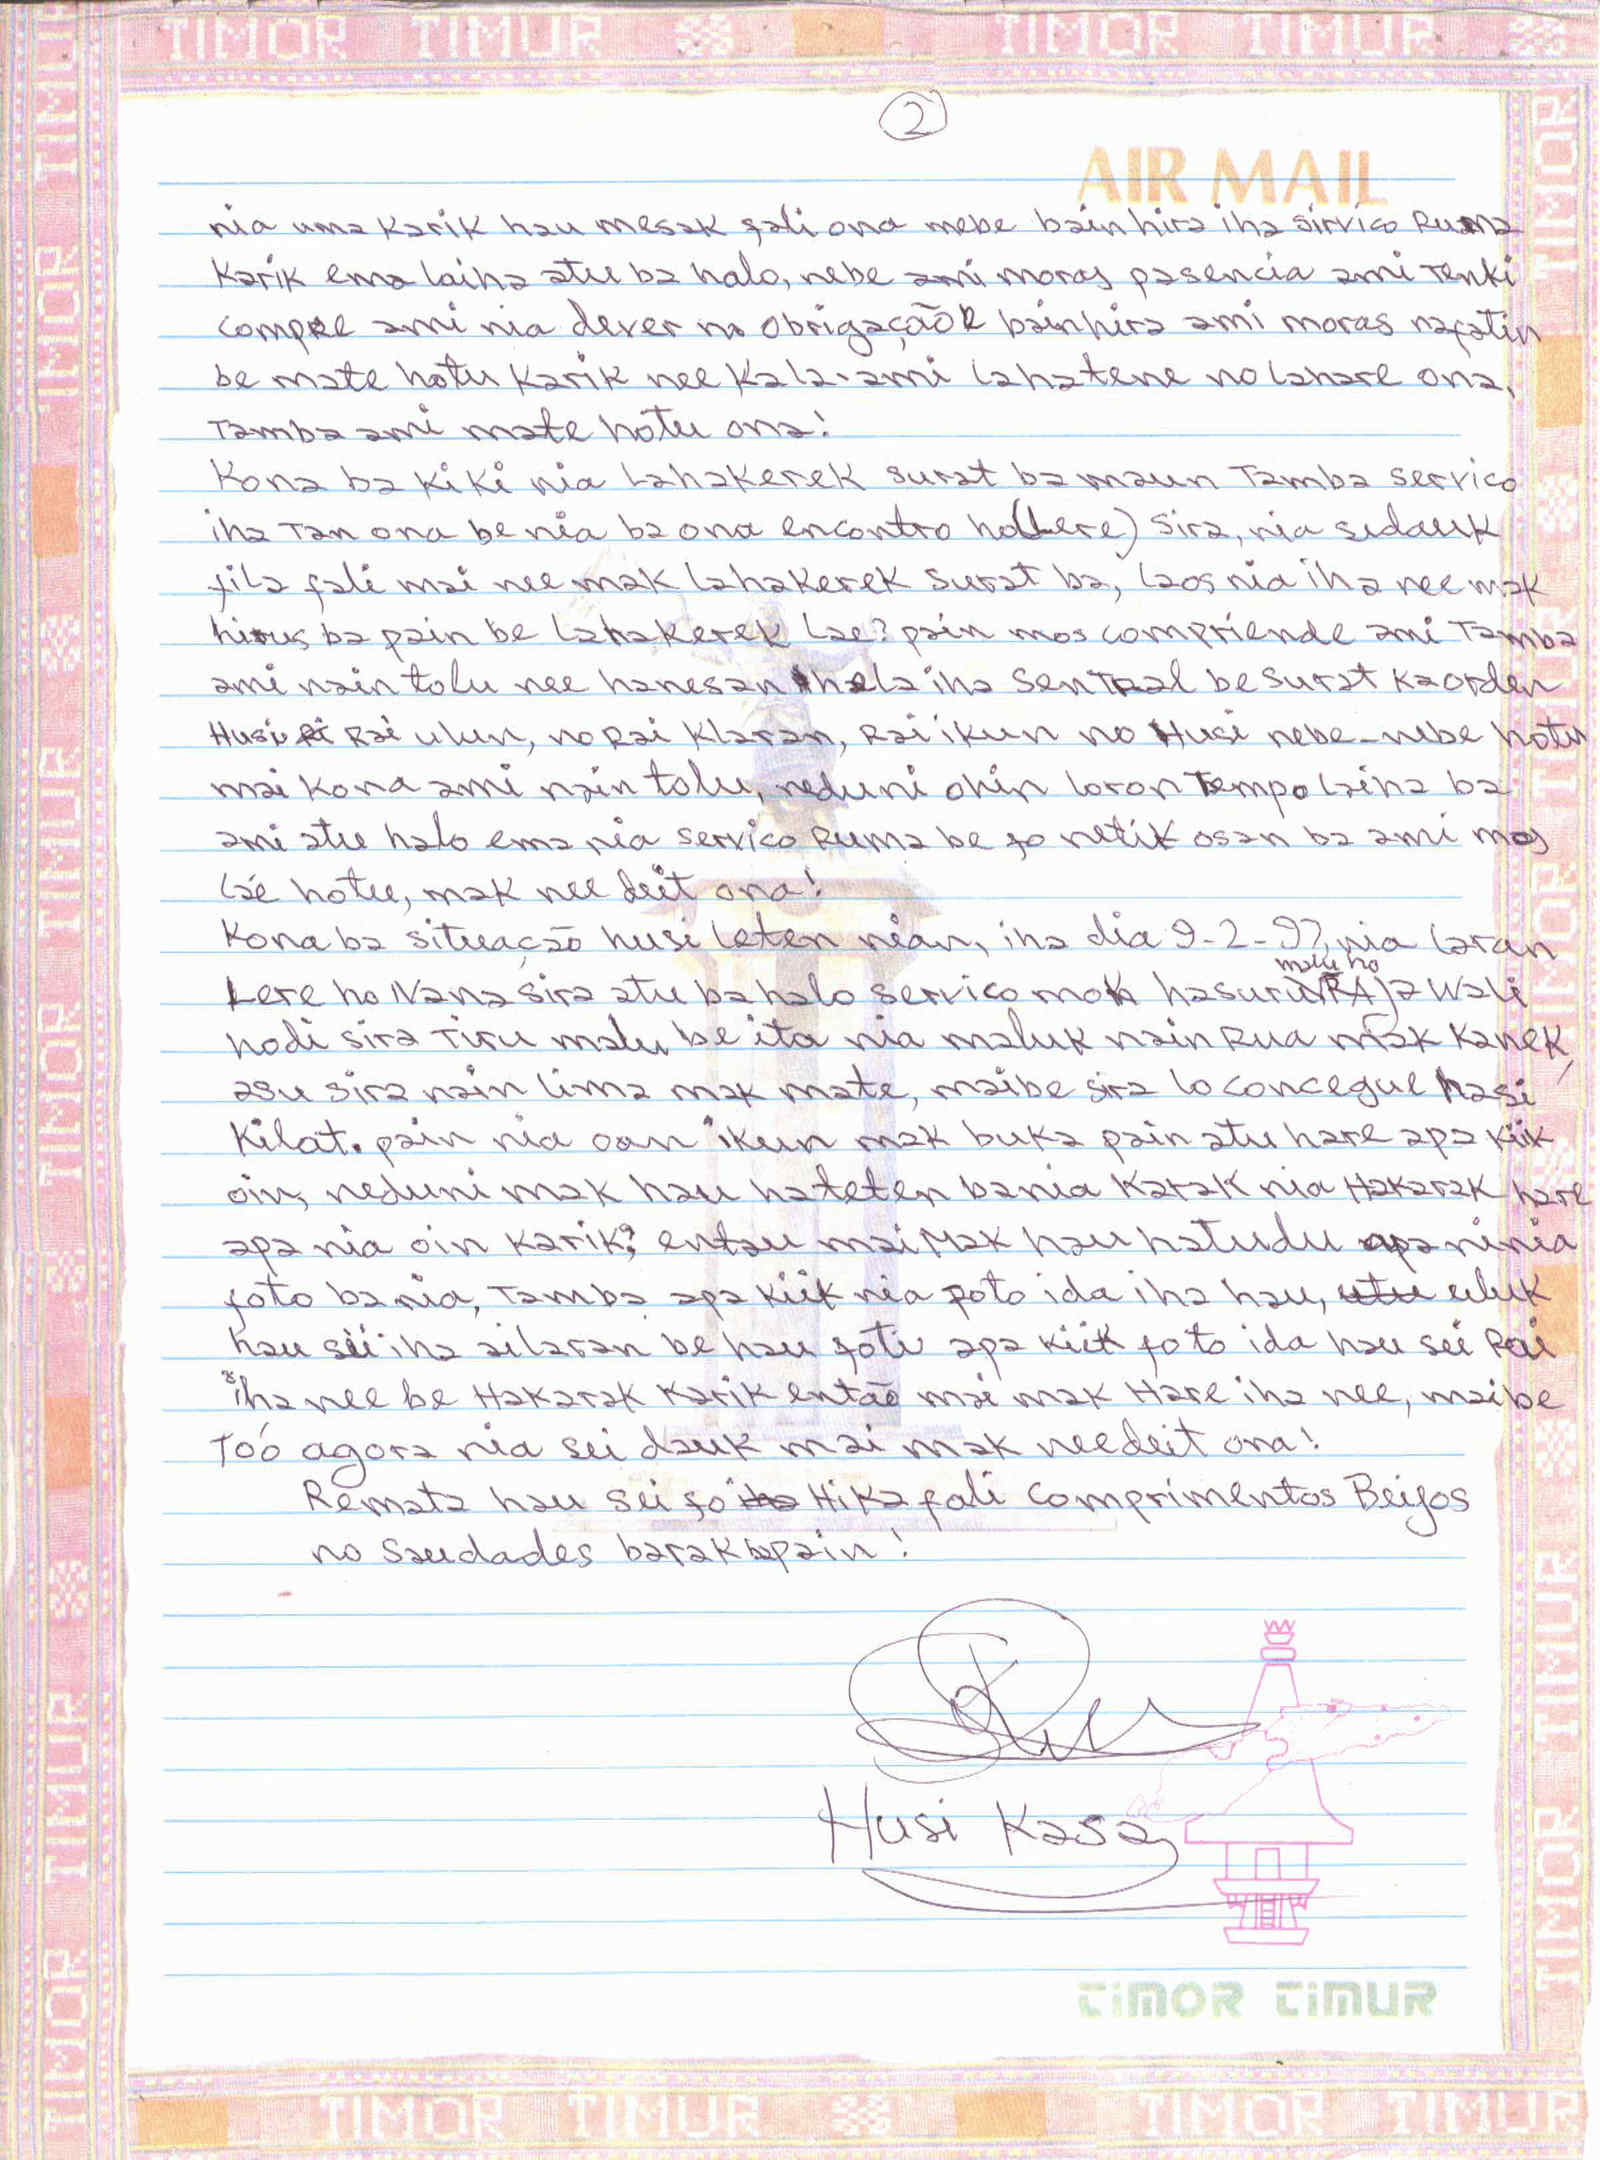 TIMOR TIMUR TIMOR TIMUR
2
AIR MAIL
nia uma karik hau mesak fali ona mebe bainhira iha sirvico Ruma
Karik ema laiha atu ba halo, nebe ami moras pasencia ami Tenki
compre ami nia dever no obrigação bainhira ami moras nafatin
be mate hotu Karik nee Kala. ami lahatene no lahare ona,
Tamba ami mate hotu ona!
Kona ba kiki nia Lahakerek surat ba maun Tamba servico
iha Tan ona be nia ba ona encontro ho (Lere) sira, nia sedauk
fila fali mai nee mak Lahakerek surat ba, Laos nia iha nee mak
hirus ba pain be Lahakerek Lae? pain mos compriende ami Tamba
ami nain tolu nee hanesan hela iha Sentral be surat ka orden
Husi Rai ulun, no Rai Klaran, Rai ikun no Husi nebe-nebe hotu
mai kona ami nain tolu, neduni ohin loron Tempo laiha ba
ami atu halo ema nia servico Ruma be fo netik osan ba ami mos
Láe hotu, mak nee deit ona!
Kona ba situação husi leten nian, iha dia 9-2-97, nia laran
malu ho
Lere ho Nana sira atu ba halo servico mak hasuru RAJawali
hodi sira Tiru malu be ita nia maluk nain Rua mak Kanek,
asu sira nain lima mak mate, maibe sira lo concegue hasi
Kilat. pain nia oan ikun mak buka pain atu hare apa kiik
oin, neduni mak hau hateten ba nia Karak nia Hakarak hare
apa nia oin karik? entau mai Mak hau hatudu apa ninia
foto ba nia, Tamba apa kiik nia poto ida iha hau, uluk
hau sei iha ailaran be hau foti apa kiik foto ida hau sei Rai
iha nee be Hakarak Karik então mai mak Hare iha nee, maibe
Toó agora nia sei dauk mai mak nee deit ona!
Remata hau sei fo Hika fali Comprimentos Beijos
no Saudades barak ba pain!
Husi Kasa
TIMOR TIMUR
TIMOR TIMUR TIMOR TIMUR